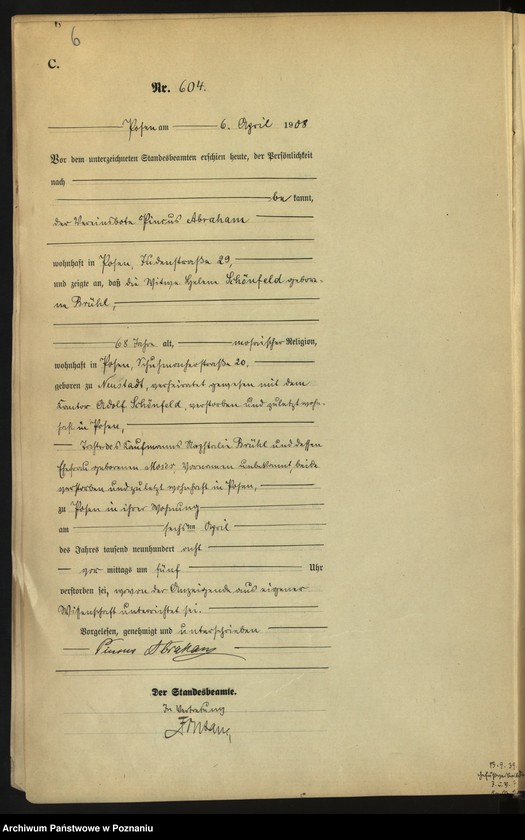 6
C.
Nr. 604.
Posen am 6. April 1908
Vor dem unterzeichneten Standesbeamten erschien heute, der Persönlichkeit
nach
be kannt,
der Vereinsbote Pincus Abraham
wohnhaft in Posen, Judenstraße 29,
und zeigte an, daß die Witwe Helene Schönfeld gebore-
ne Brühl,
68 Jahre alt, mosaischer Religion,
wohnhaft in Posen, Schuhmacherstraße 20,
geboren zu Neustadt, verheiratet gewesen mit dem
Kantor Adolf Schönfeld, verstorben und zuletzt wohn-
haft in Posen,
Tochter des Kaufmanns Naphtalie Brühl und dessen
Ehefrau geborenen Vornamen unbekannt, beide
verstorben und zuletzt wohnhaft in Posen,
zu Posen in ihrer Wohnung
am sechsten April
des Jahres tausend neunhundert acht
vor mittags um fünf Uhr
verstorben sei, wovon der Anzeigende aus eigener
Wissenschaft unterrichtet sei.
Vorgelesen, genehmigt und unterschrieben
Pincus Abraham
Der Standesbeamte.
In Vertretung
Archiwum Państwowe w Poznaniu